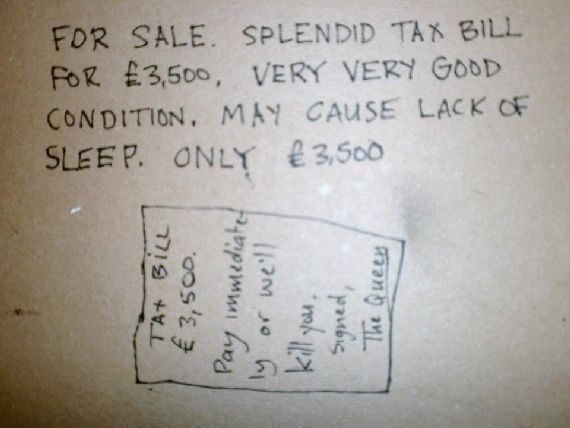 FOR SALE. SPLENDID TAX BILL
FOR £3,500, VERY VERY GOOD
CONDITION. MAY CAUSE LACK OF
SLEEP. ONLY £3,500
TAX BILL
£3,500.
Pay immediate-
ly or we'll
kill you.
signed,
The Queen